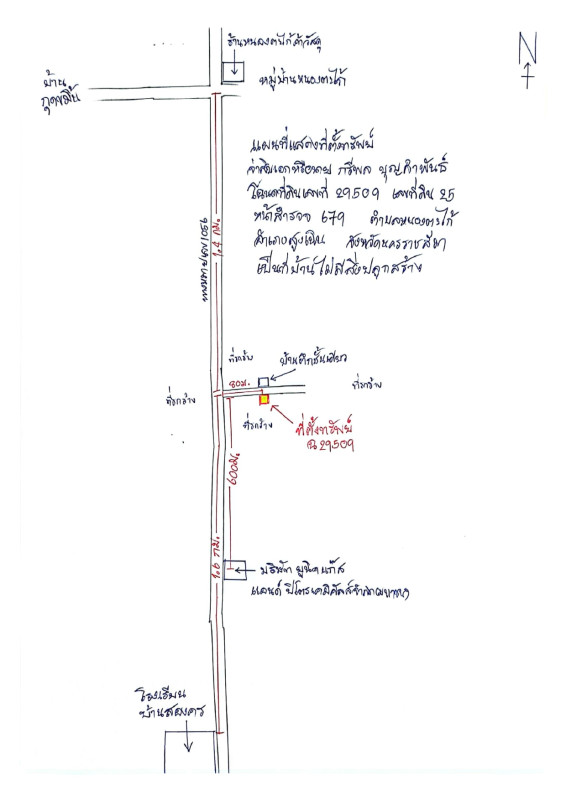 ร้านหนองตะไก้ค้าวัสดุ
N
หมู่บ้านหนองตะไก้
บ้าน
กุดขมิ้น
แผนที่แสดงที่ตั้งทรัพย์
จ่าสิบเอกหรือนาย ภรีพล บุญคำพันธ์
โฉนดที่ดินเลขที่ 29509 เลขที่ดิน 25
หน้าสำรวจ 679 ตำบลหนองตะไก้
อำเภอสูงเนิน จังหวัดนครราชสีมา
เป็นที่บ้านไม่มีสิ่งปลูกสร้าง
1056
กม.
ที่ว่าง
บ้านตึกชั้นเดียว
80ม.
ที่ว่าง
ที่รกร้าง
ที่รกร้าง
ที่ตั้งทรัพย์
ฉ.29509
600ม.
1.6 กม.
บริษัท ยูนิคแก๊ส
แอนด์ ปิโตรเคมิคัลส์จำกัด(มหาชน)
โรงเรียน
บ้านสลองคร